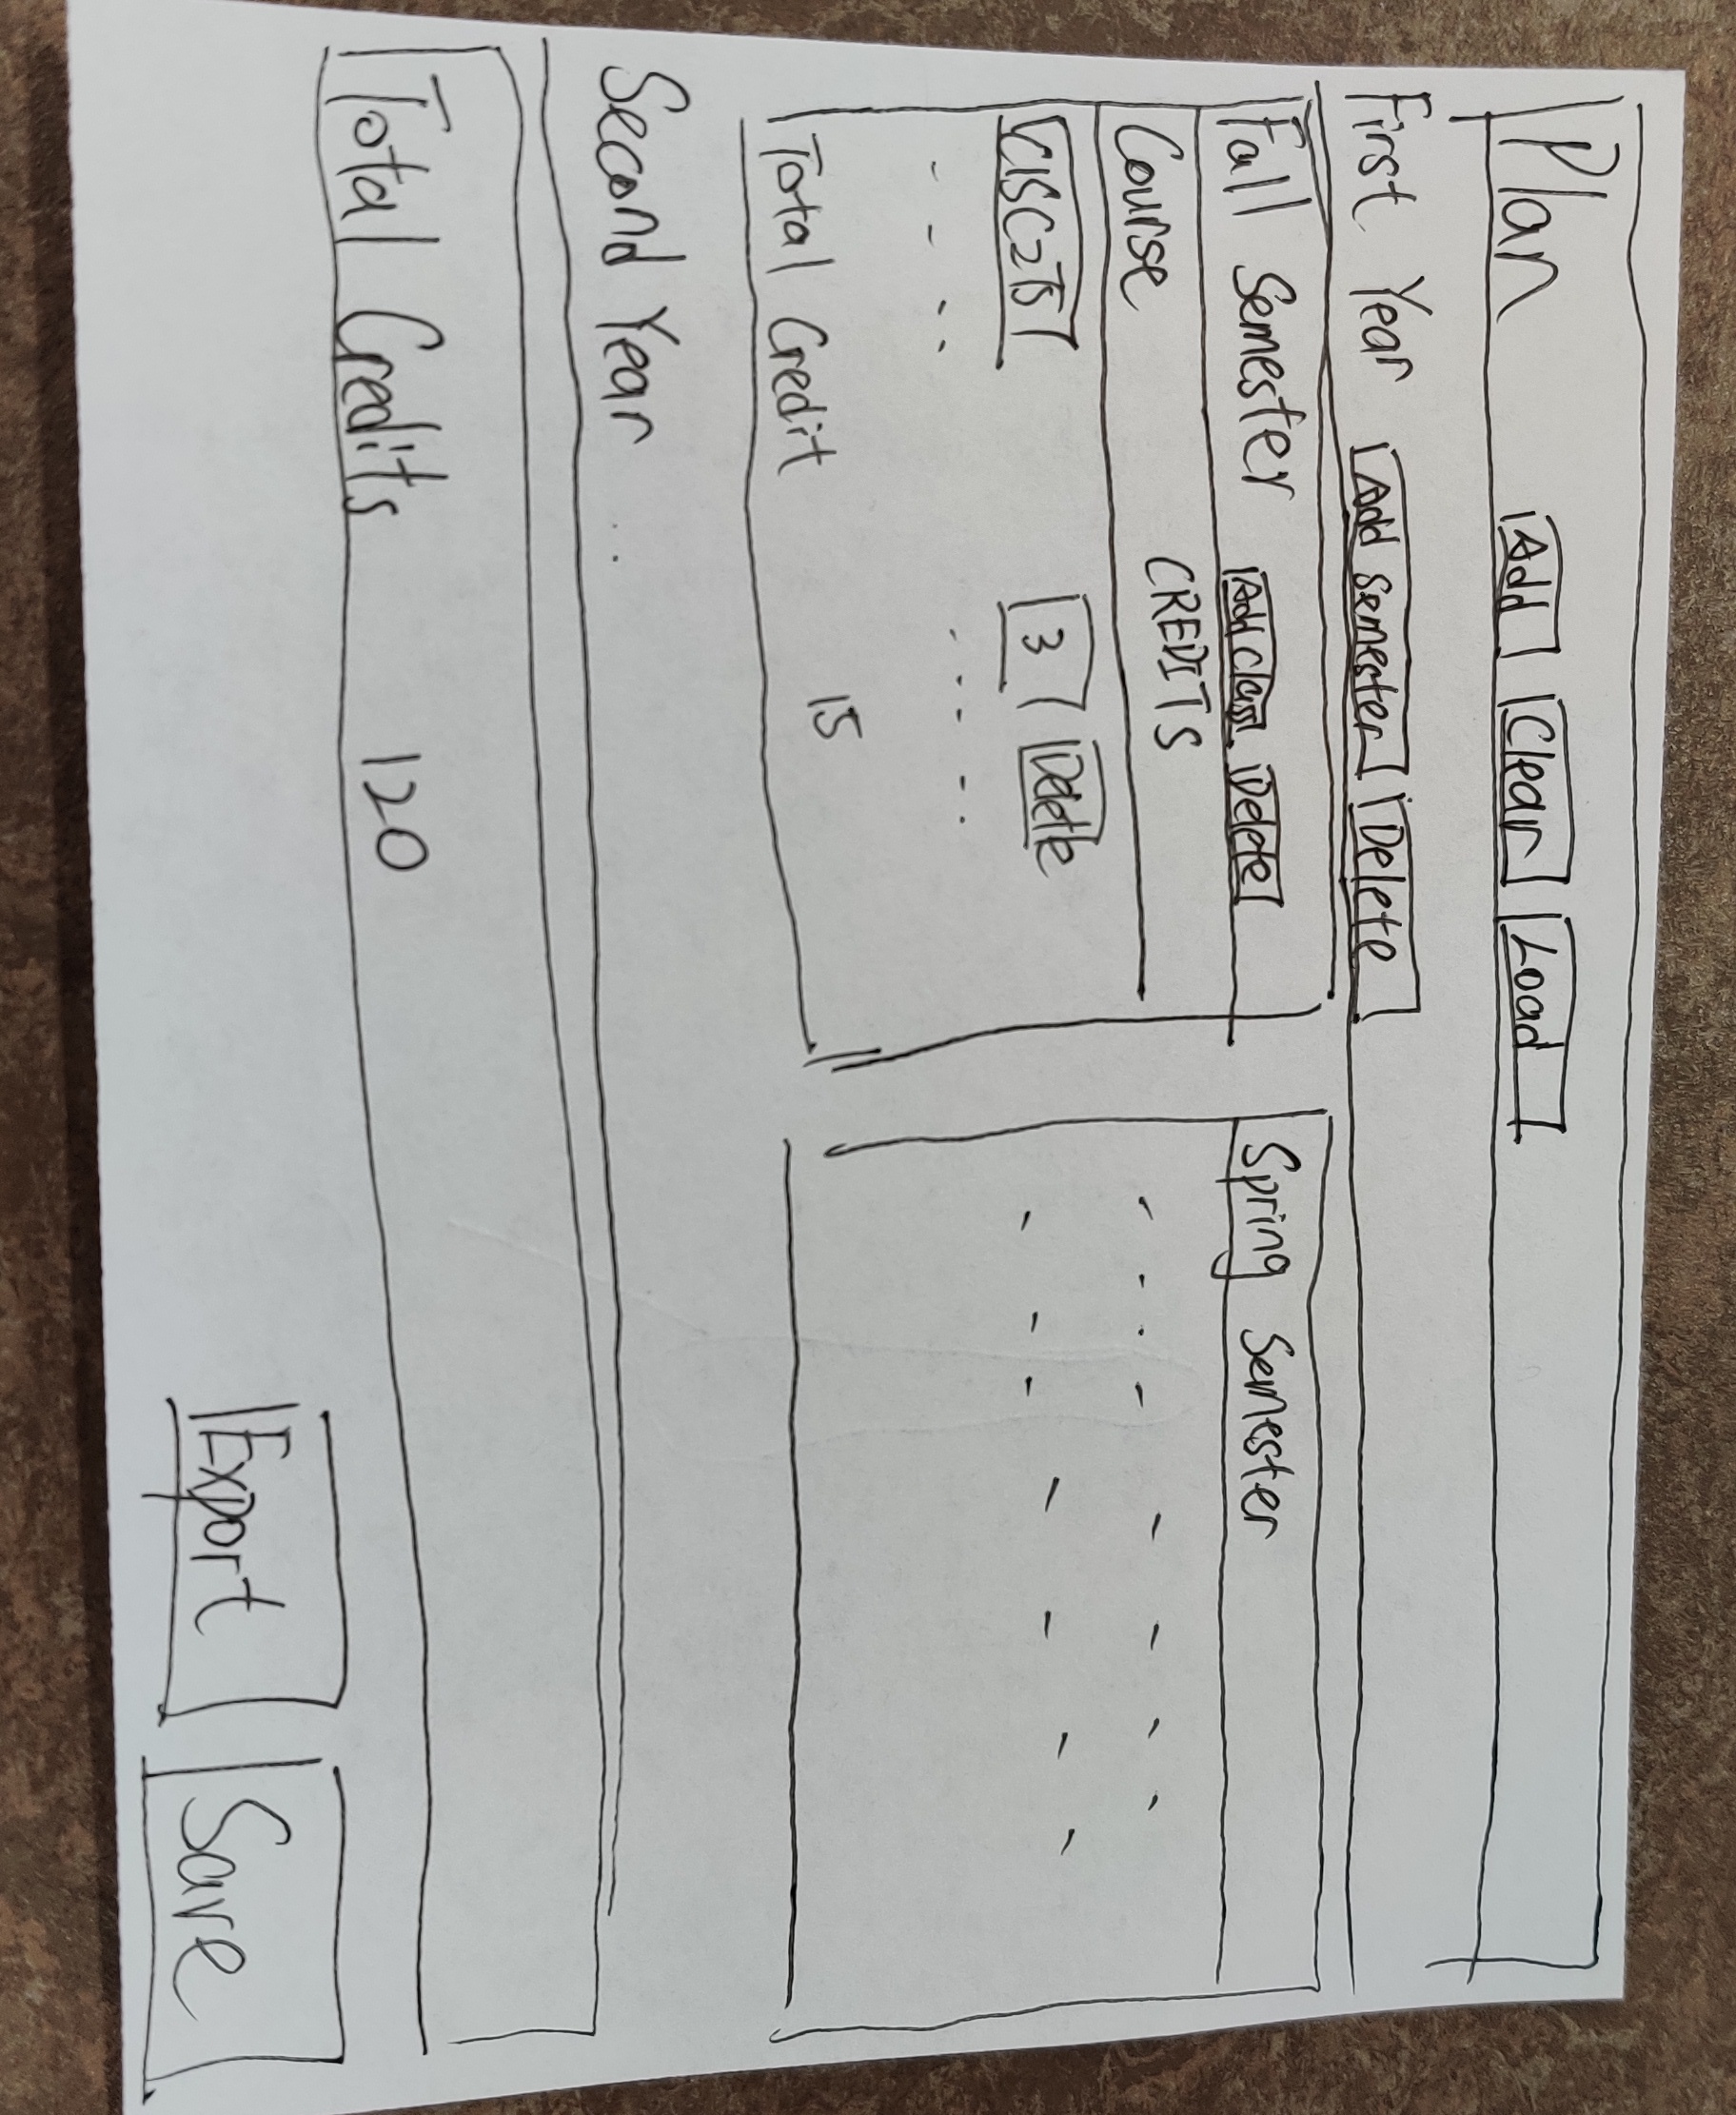 Plan Add Clear Load
First Year Add semester Delete
Fall Semester Add Class Delete
Spring Semester
Course CREDITS
CISC275 3 Delete
Total Credit 15
Second Year ..
Total Credits 120
Export Save